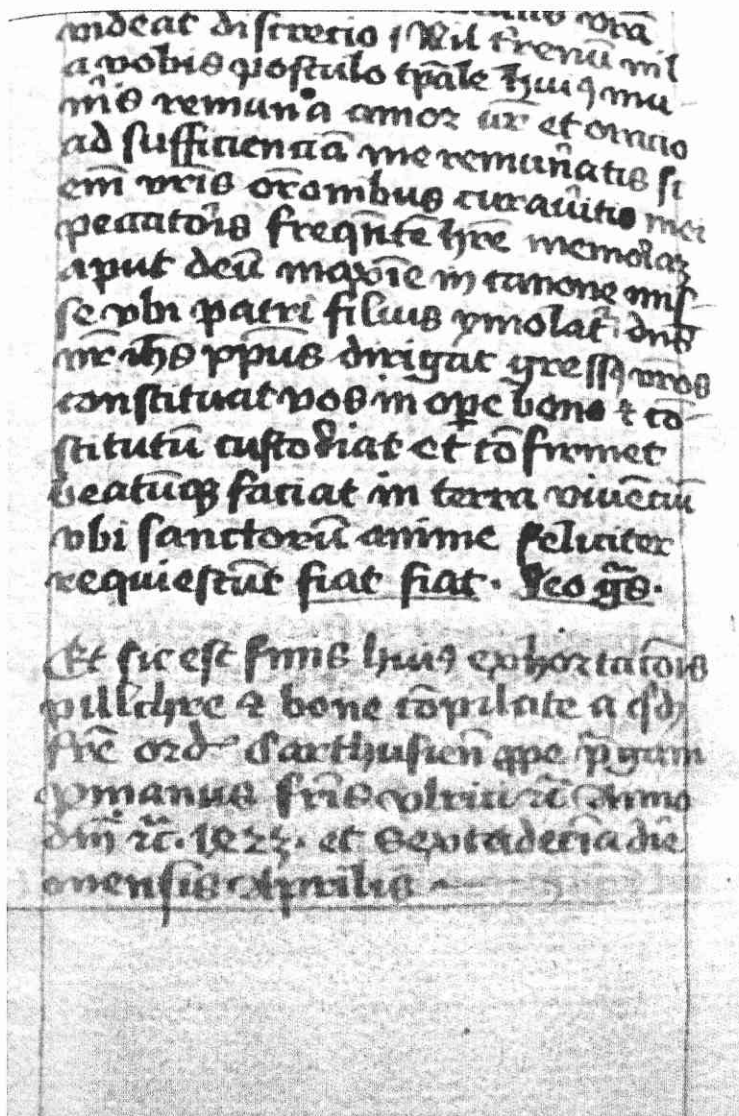 videat discrecio
a vobis postulo tp̄ale huiꝰ mu-
n̄is remun̄a amor ur̄ et oracio
ad sufficienciā me remun̄atis si
em̄ vr̄is or̄onibus curav̄itis mei
peccator̄is freqn̄tē hr̄e memoriā
aput deū maxīe in canone mis-
se vbi patri filius ymolat̄ dn̄s
nr̄ ih̄s xp̄us dirigat gressꝰ vr̄os
constituat vos in ope bono ⁊ cō-
stitutū custodiat et cōfirmet
beatūqꝫ faciat in terra viuēciū
vbi sanctorū anime feliciter
requiescūt fiat fiat. Deo gr̄s.
Et sic est finis huiꝰ exhortacōis
pulchre ⁊ bone cōpilate a qd̄
fr̄e ord̄ Carthusien̄ ꝓpe p̄gam
ꝑ manus fr̄is vlrici ⁊c̄ Anno
dn̄i ⁊c̄. 1423. et Sextadecīa diē
mensis Aprilis